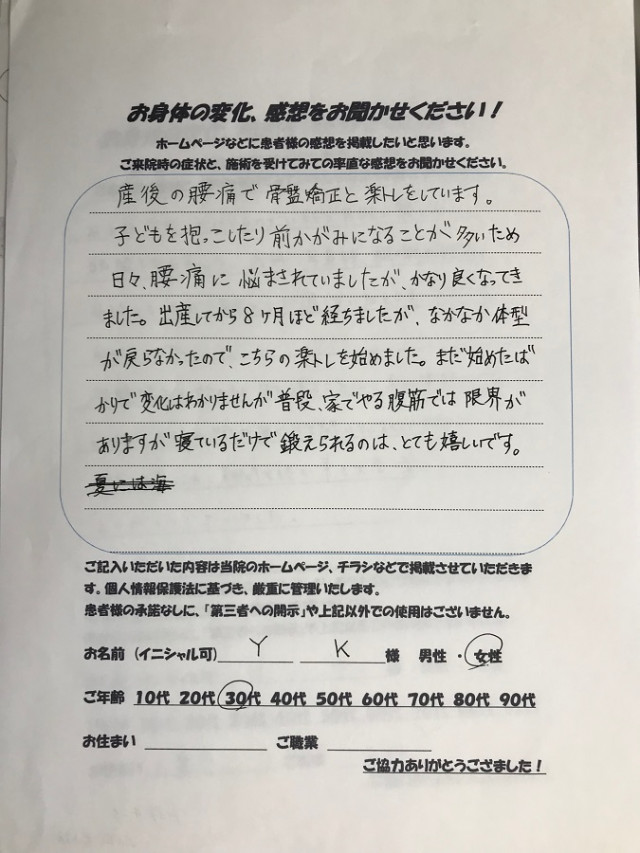 お身体の変化、感想をお聞かせください！
ホームページなどに患者様の感想を掲載したいと思います。
ご来院時の症状と、施術を受けてみての率直な感想をお聞かせください。
産後の腰痛で骨盤矯正と楽トレをしています。
子どもを抱っこしたり前かがみになることが多いため
日々、腰痛に悩まされていましたが、かなり良くなってき
ました。出産してから8ヶ月ほど経ちましたが、なかなか体型
が戻らなかったので、こちらの楽トレを始めました。まだ始めたば
かりで変化はわかりませんが普段、家でやる腹筋では限界が
ありますが寝ているだけで鍛えられるのは、とても嬉しいです。
夏には海
ご記入いただいた内容は当院のホームページ、チラシなどで掲載させていただきま
す。個人情報保護法に基づき、厳重に管理いたします。
患者様の承諾なしに、「第三者への開示」や上記以外での使用はございません。
お名前（イニシャル可） Y K 様 男性・女性
ご年齢 10代 20代 30代 40代 50代 60代 70代 80代 90代
お住まい ご職業
ご協力ありがとうござました！